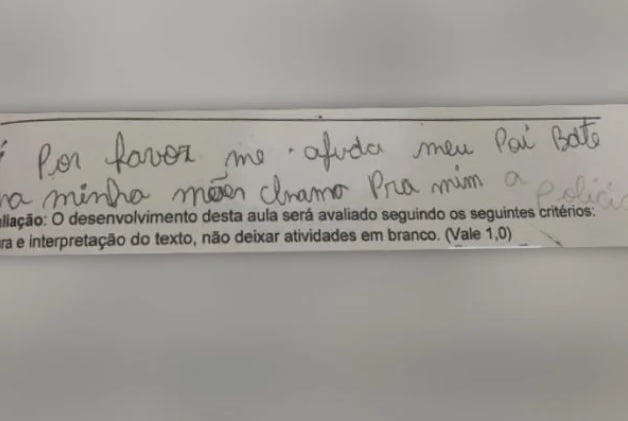 Por favor me afuda meu Pai Bate
na minha mães chama Pra mim a polícia
aliação: O desenvolvimento desta aula será avaliado seguindo os seguintes critérios:
ra e interpretação do texto, não deixar atividades em branco. (Vale 1,0)